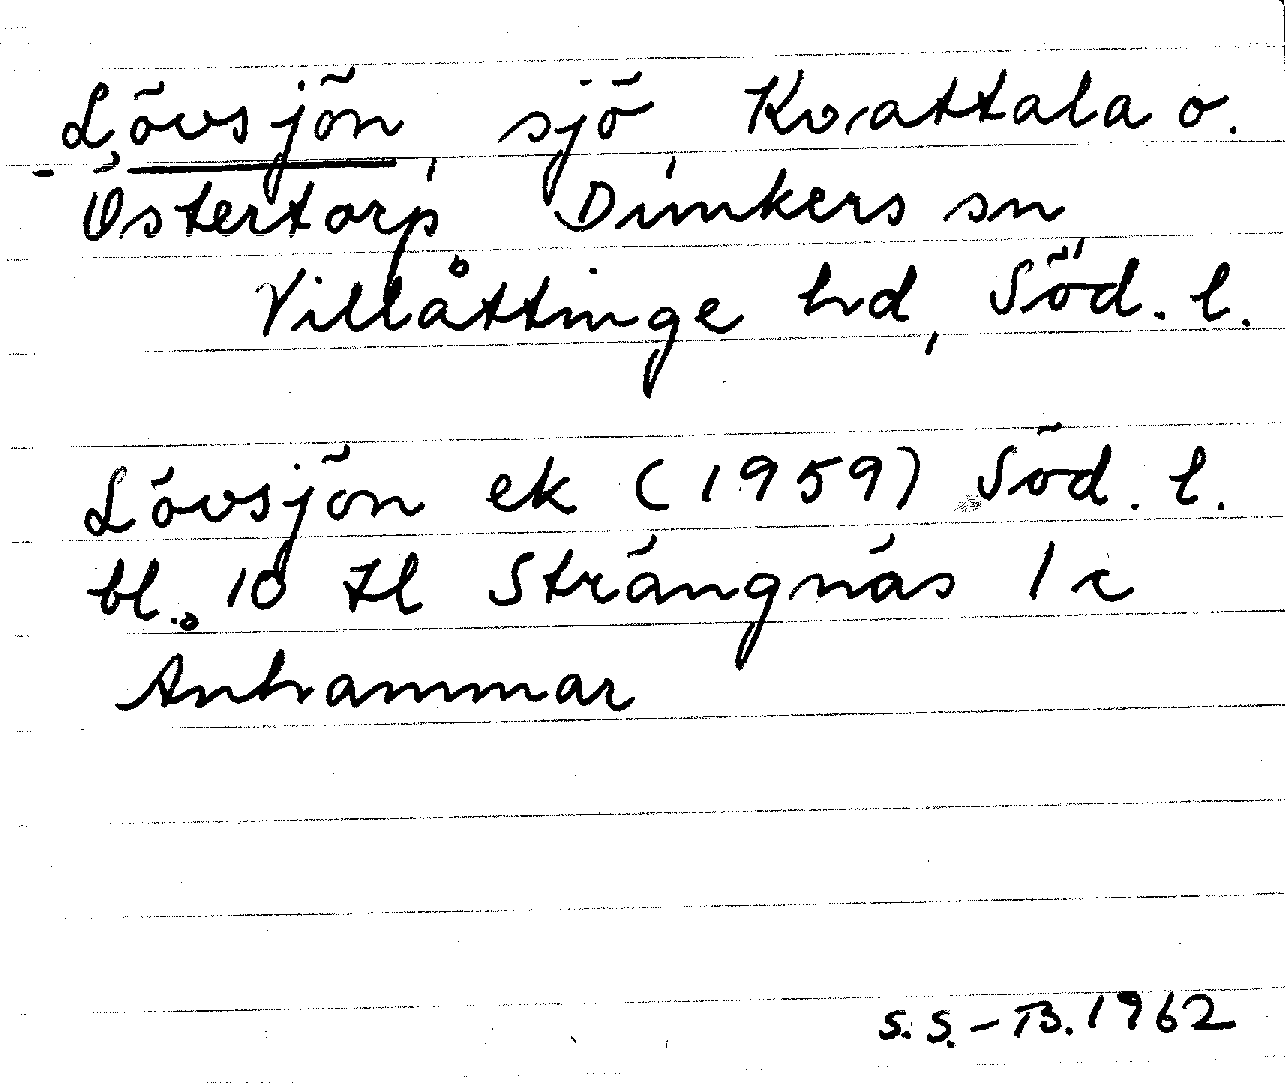 Lövsjön, sjö, Kvattala o.
Östertorp Dunkers sn
Villåttinge hd, Söd. l.
Lövsjön ek (1959) Söd. l.
bl. 10 Hl Strängnäs 1 c
Ånhammar
S.S.-B. 1962